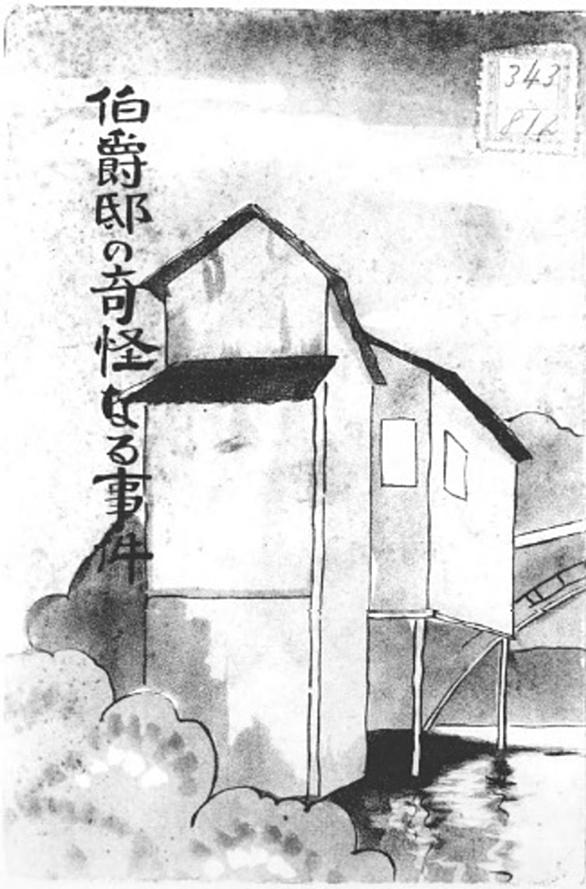 伯爵邸の奇怪なる事件
343
812